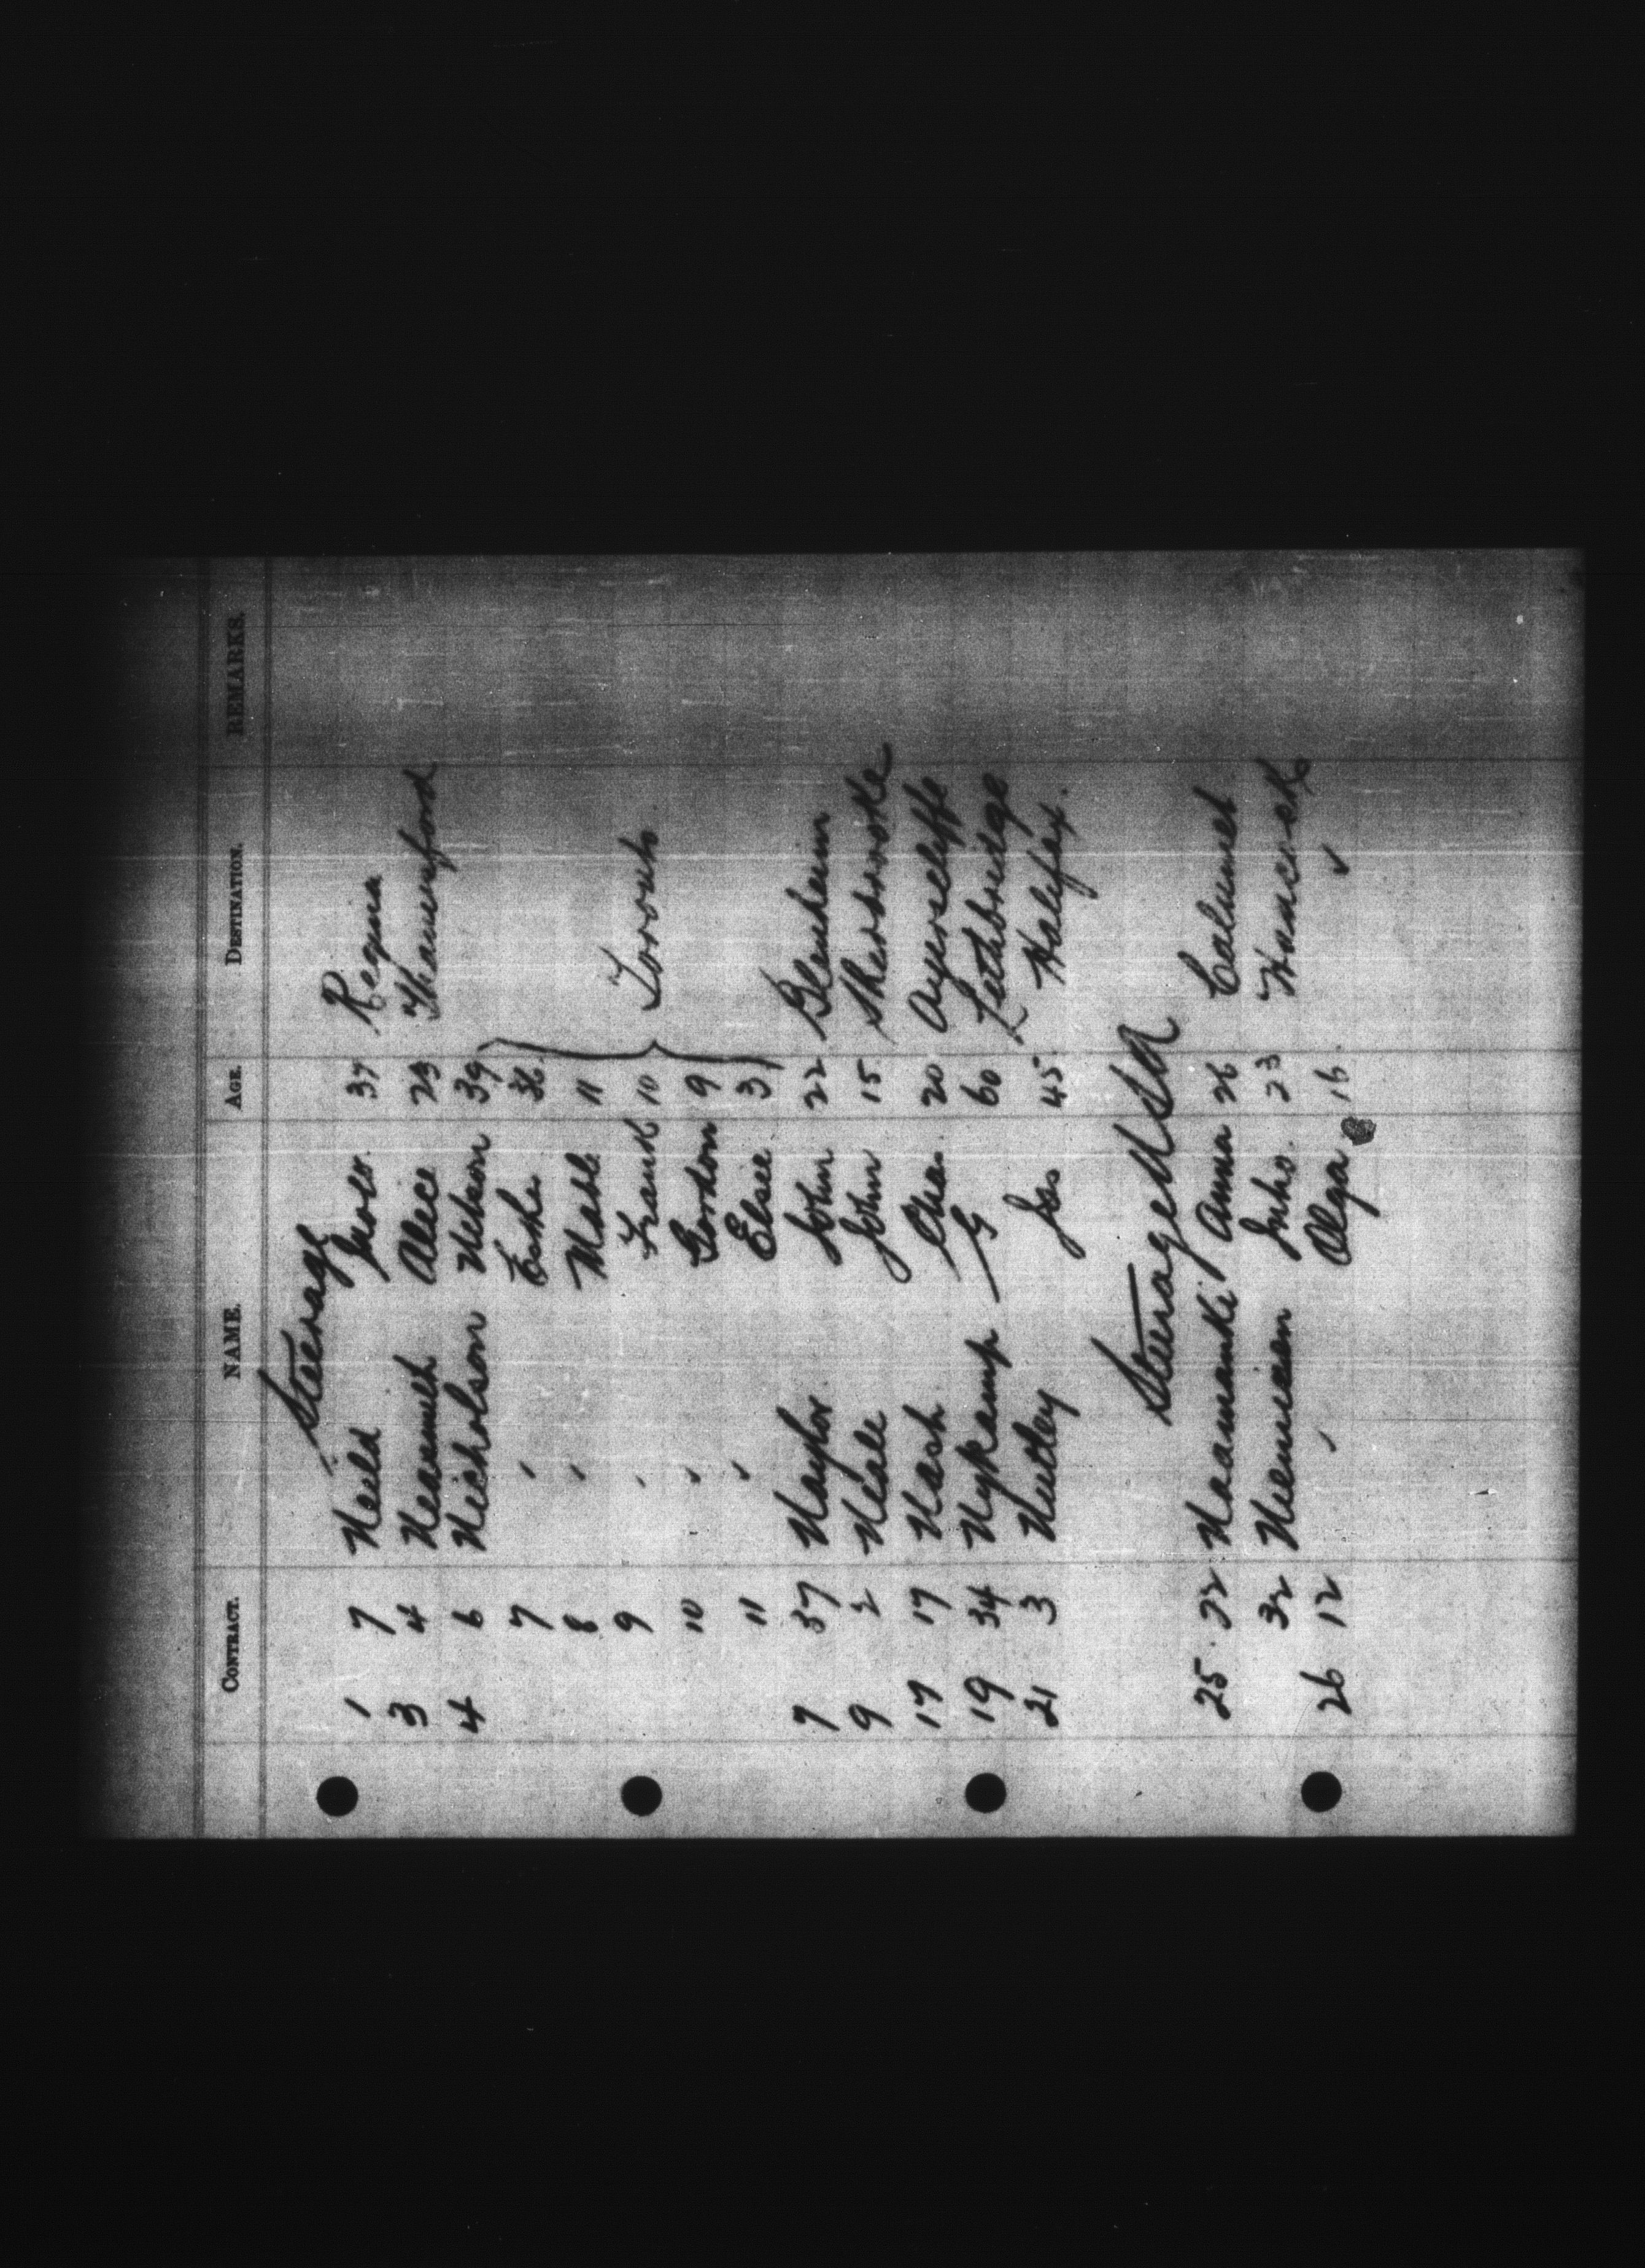 CONTRACT. NAME. AGE. DESTINATION. REMARKS.
Steerage
1 7 Neild 37 Regina
3 4 Neasmith Alice 23 Thamesford
4 6 Nicholson Nelson 39
7 " 36
8 " Mabl 11
9 " Frank 10 Toronto
10 " Gordon 9
11 " Elsie 3
7 37 Naylor John 22 Blenheim
9 2 Neale John 15 Sherbrooke
17 17 Nash Chas 20 Ayerscliffe
19 34 Nykamp G 60 Lethbridge
21 3 Nutley Jas 45 Halifax.
Steerage USA
25 22 Naamanki Anna 26 Calumet
32 Nieminen Juho. 23 Hancock
26 12 " Olga 16 "